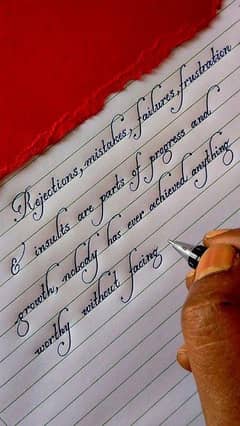 Rejections, mistakes, failures, frustration
& insults are parts of progress and
growth, nobody has ever achieved anything
worthy without facing